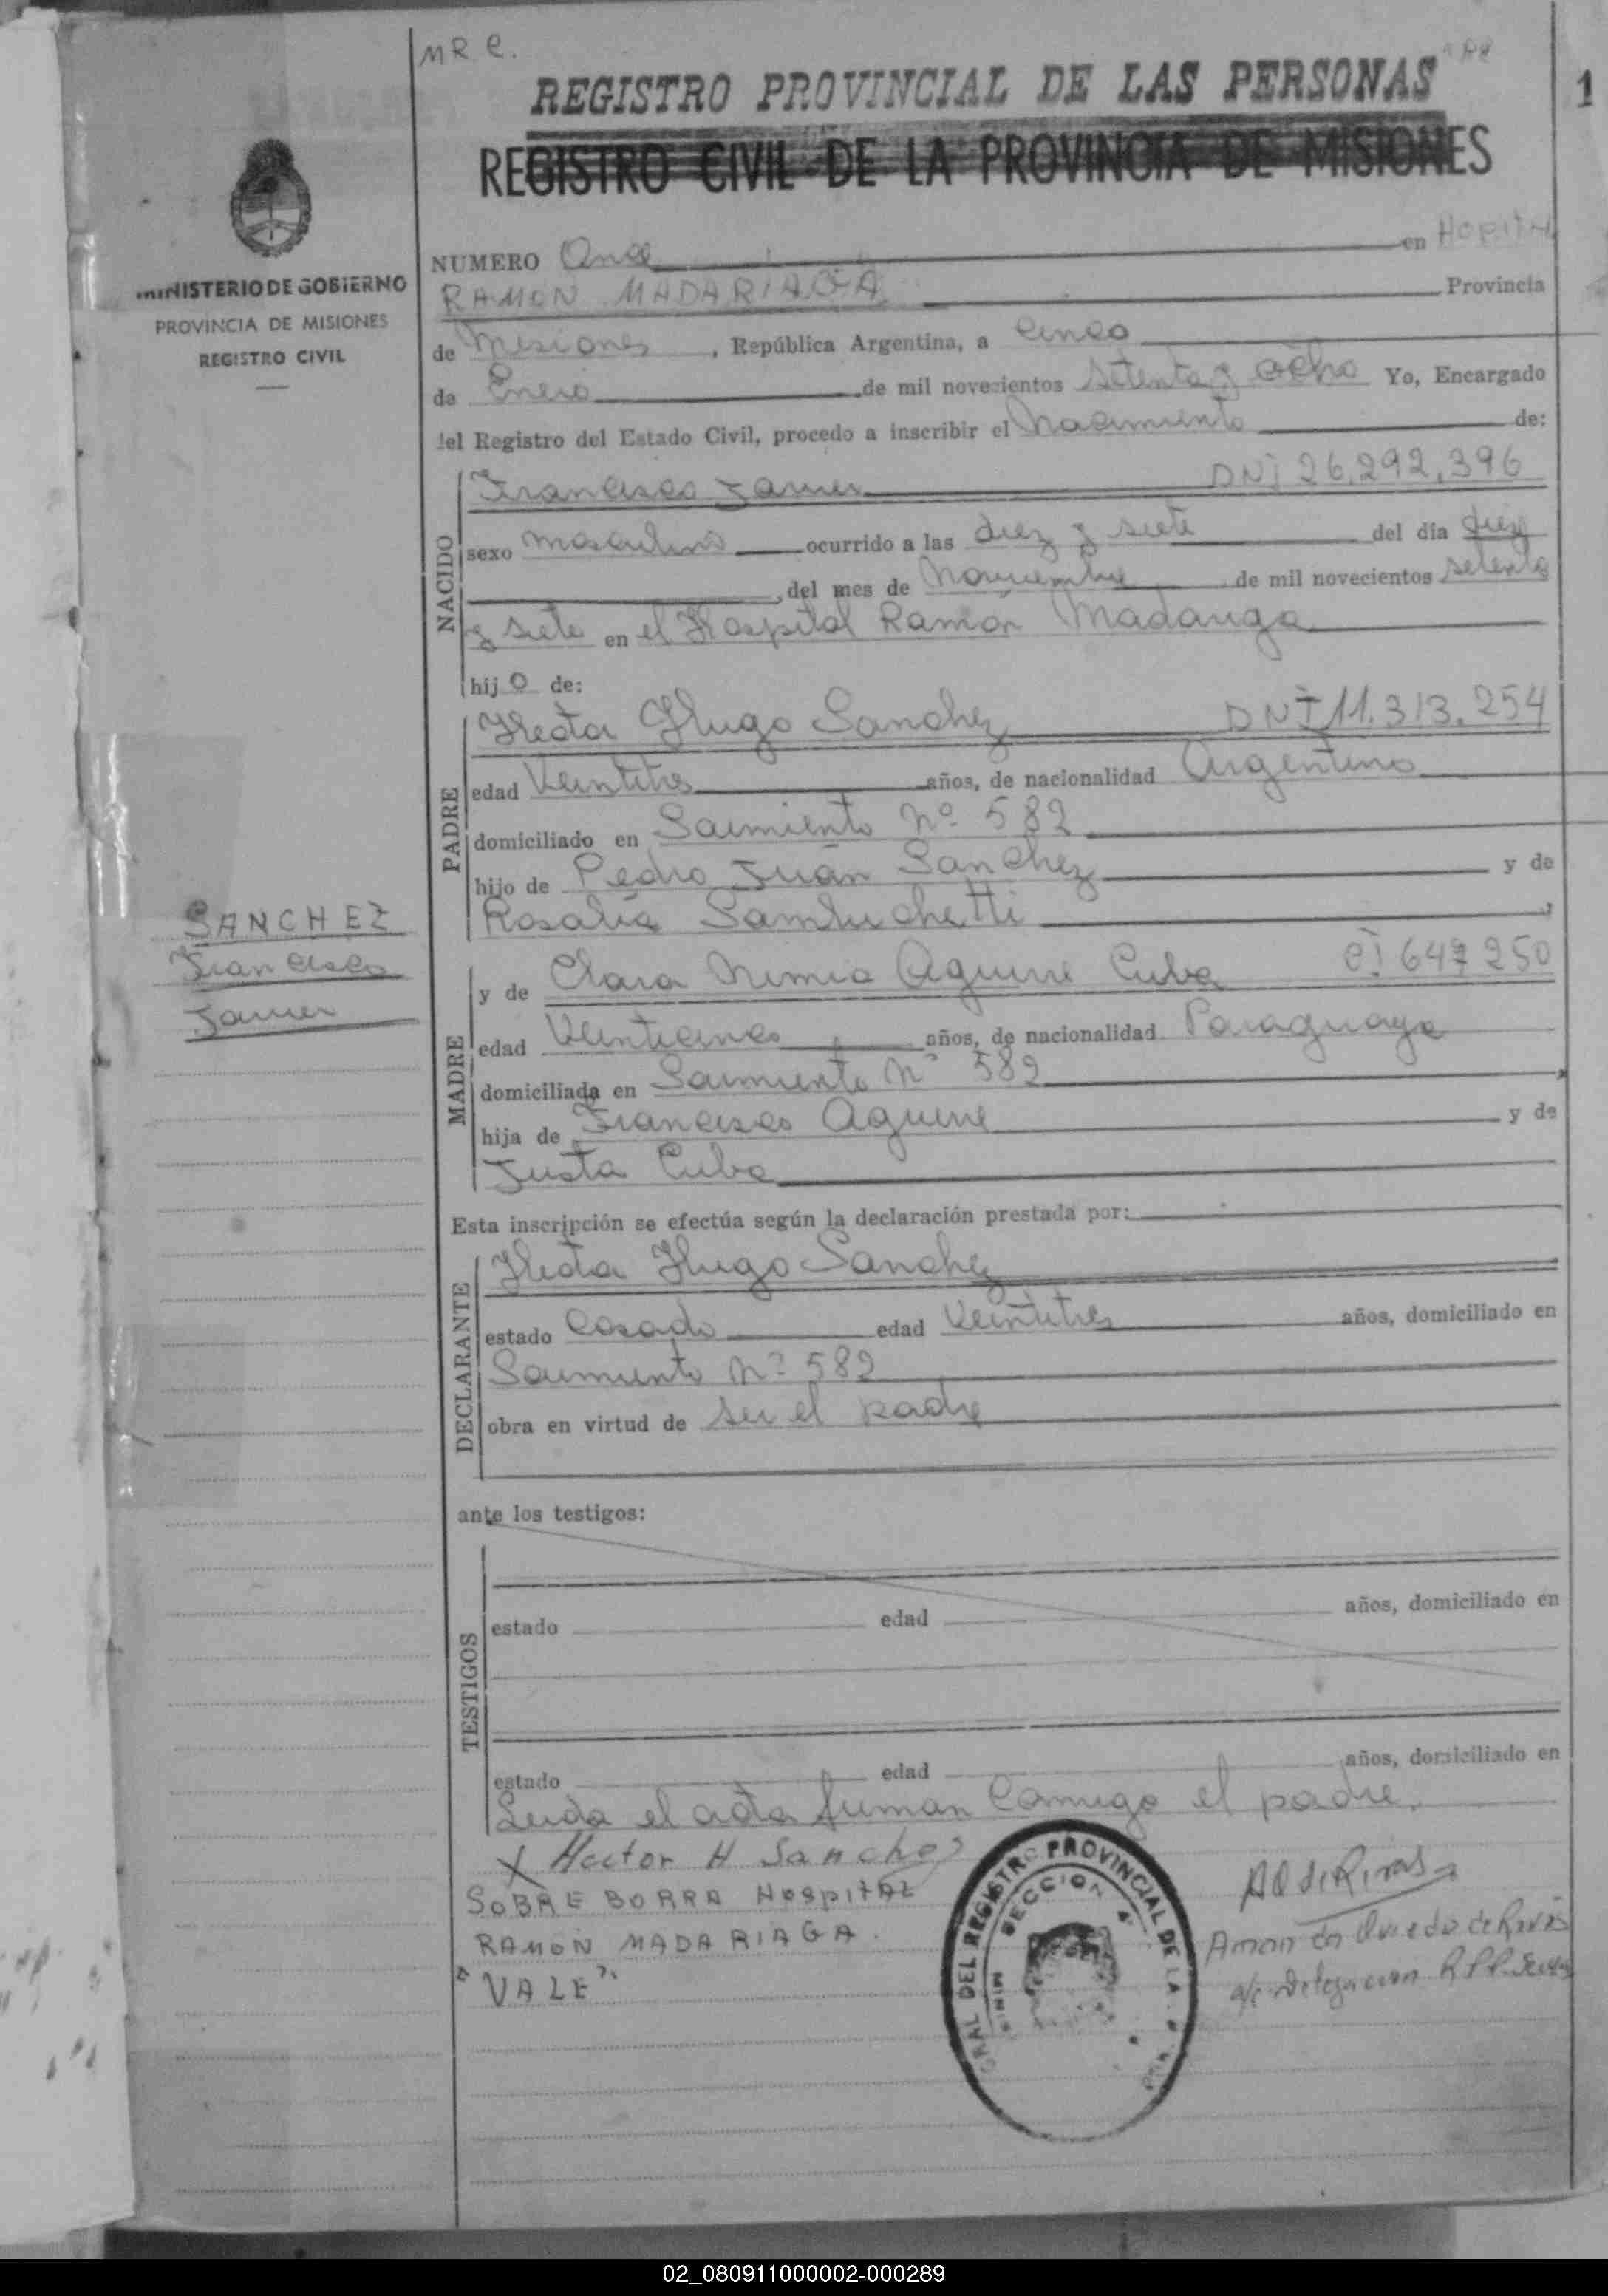 MR C.
REGISTRO PROVINCIAL DE LAS PERSONAS
1
REGISTRO CIVIL DE LA PROVINCIA DE MISIONES
MINISTERIO DE GOBIERNO
PROVINCIA DE MISIONES
REGISTRO CIVIL
NUMERO Once en HOPITAL
RAMON MADARIAGA Provincia
de Misiones, República Argentina, a cinco
de Enero de mil novecientos setenta y ocho Yo, Encargado
del Registro del Estado Civil, procedo a inscribir el Nacimiento de:
NACIDO
Francisco Javier DNI 26.292.396
sexo masculino ocurrido a las diez y siete del día diez
del mes de Noviembre de mil novecientos setenta
y siete en el Hospital Ramón Madariaga
hijo de:
PADRE
Hector Hugo Sanchez DNI 11.313.254
edad Veintitres años, de nacionalidad Argentino
domiciliado en Sarmiento Nº 582
hijo de Pedro Juán Sanchez y de
Rosalía Sambuchetti
SANCHEZ
Francisco
Javier
MADRE
y de Clara Nimia Aguirre Cuba CI 647250
edad Veinticinco años, de nacionalidad Paraguaya
domiciliada en Sarmiento Nº 582
hija de Francisco Aguirre y de
Justa Cuba
Esta inscripción se efectúa según la declaración prestada por:
DECLARANTE
Hector Hugo Sanchez
estado Casado edad Veintitres años, domiciliado en
Sarmiento Nº 582
obra en virtud de ser el padre
ante los testigos:
TESTIGOS
estado edad años, domiciliado en
estado edad años, domiciliado en
Leida el acta firman conmigo el padre.
X Hector H Sanchez
SOBRE BORRA HOSPITAL
RAMON MADARIAGA.
"VALE".
GRAL DEL REGISTRO PROVINCIAL DE LA
SECCION 4ª
MINIS
Oviedo de Rivas
a/c Delegacion
02_080911000002-000289